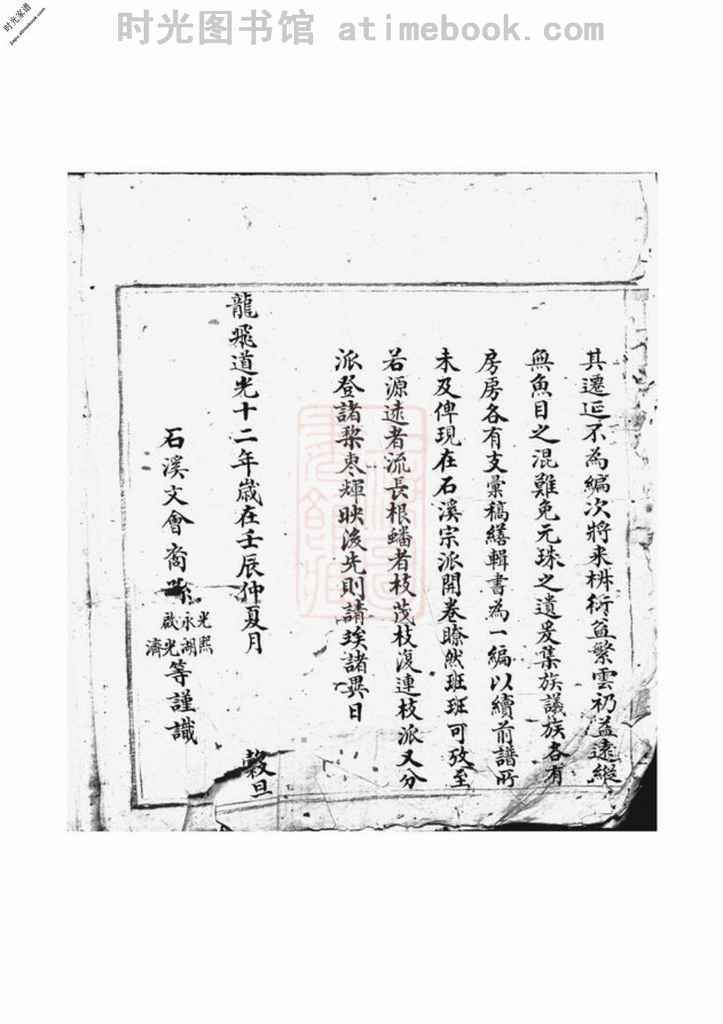 时光图书馆 atimebook.com
时光家谱
jiapu.atimebook.com
其遷延不為編次將来椒衍益繁雲礽溢遠縱
無魚目之混難免元珠之遺爰集族議族各有
房房各有支彙稿繕輯書為一編以續前譜所
未及俾現在石溪宗派開卷瞭然班班可攷至
若源遠者流長根蟠者枝茂枝復連枝派又分
派登諸棃枣輝映後先則請竢諸異日
龍飛道光十二年歲在壬辰仲夏月 穀旦
石溪文會裔 光熙 永湖 啟光濟 等謹識